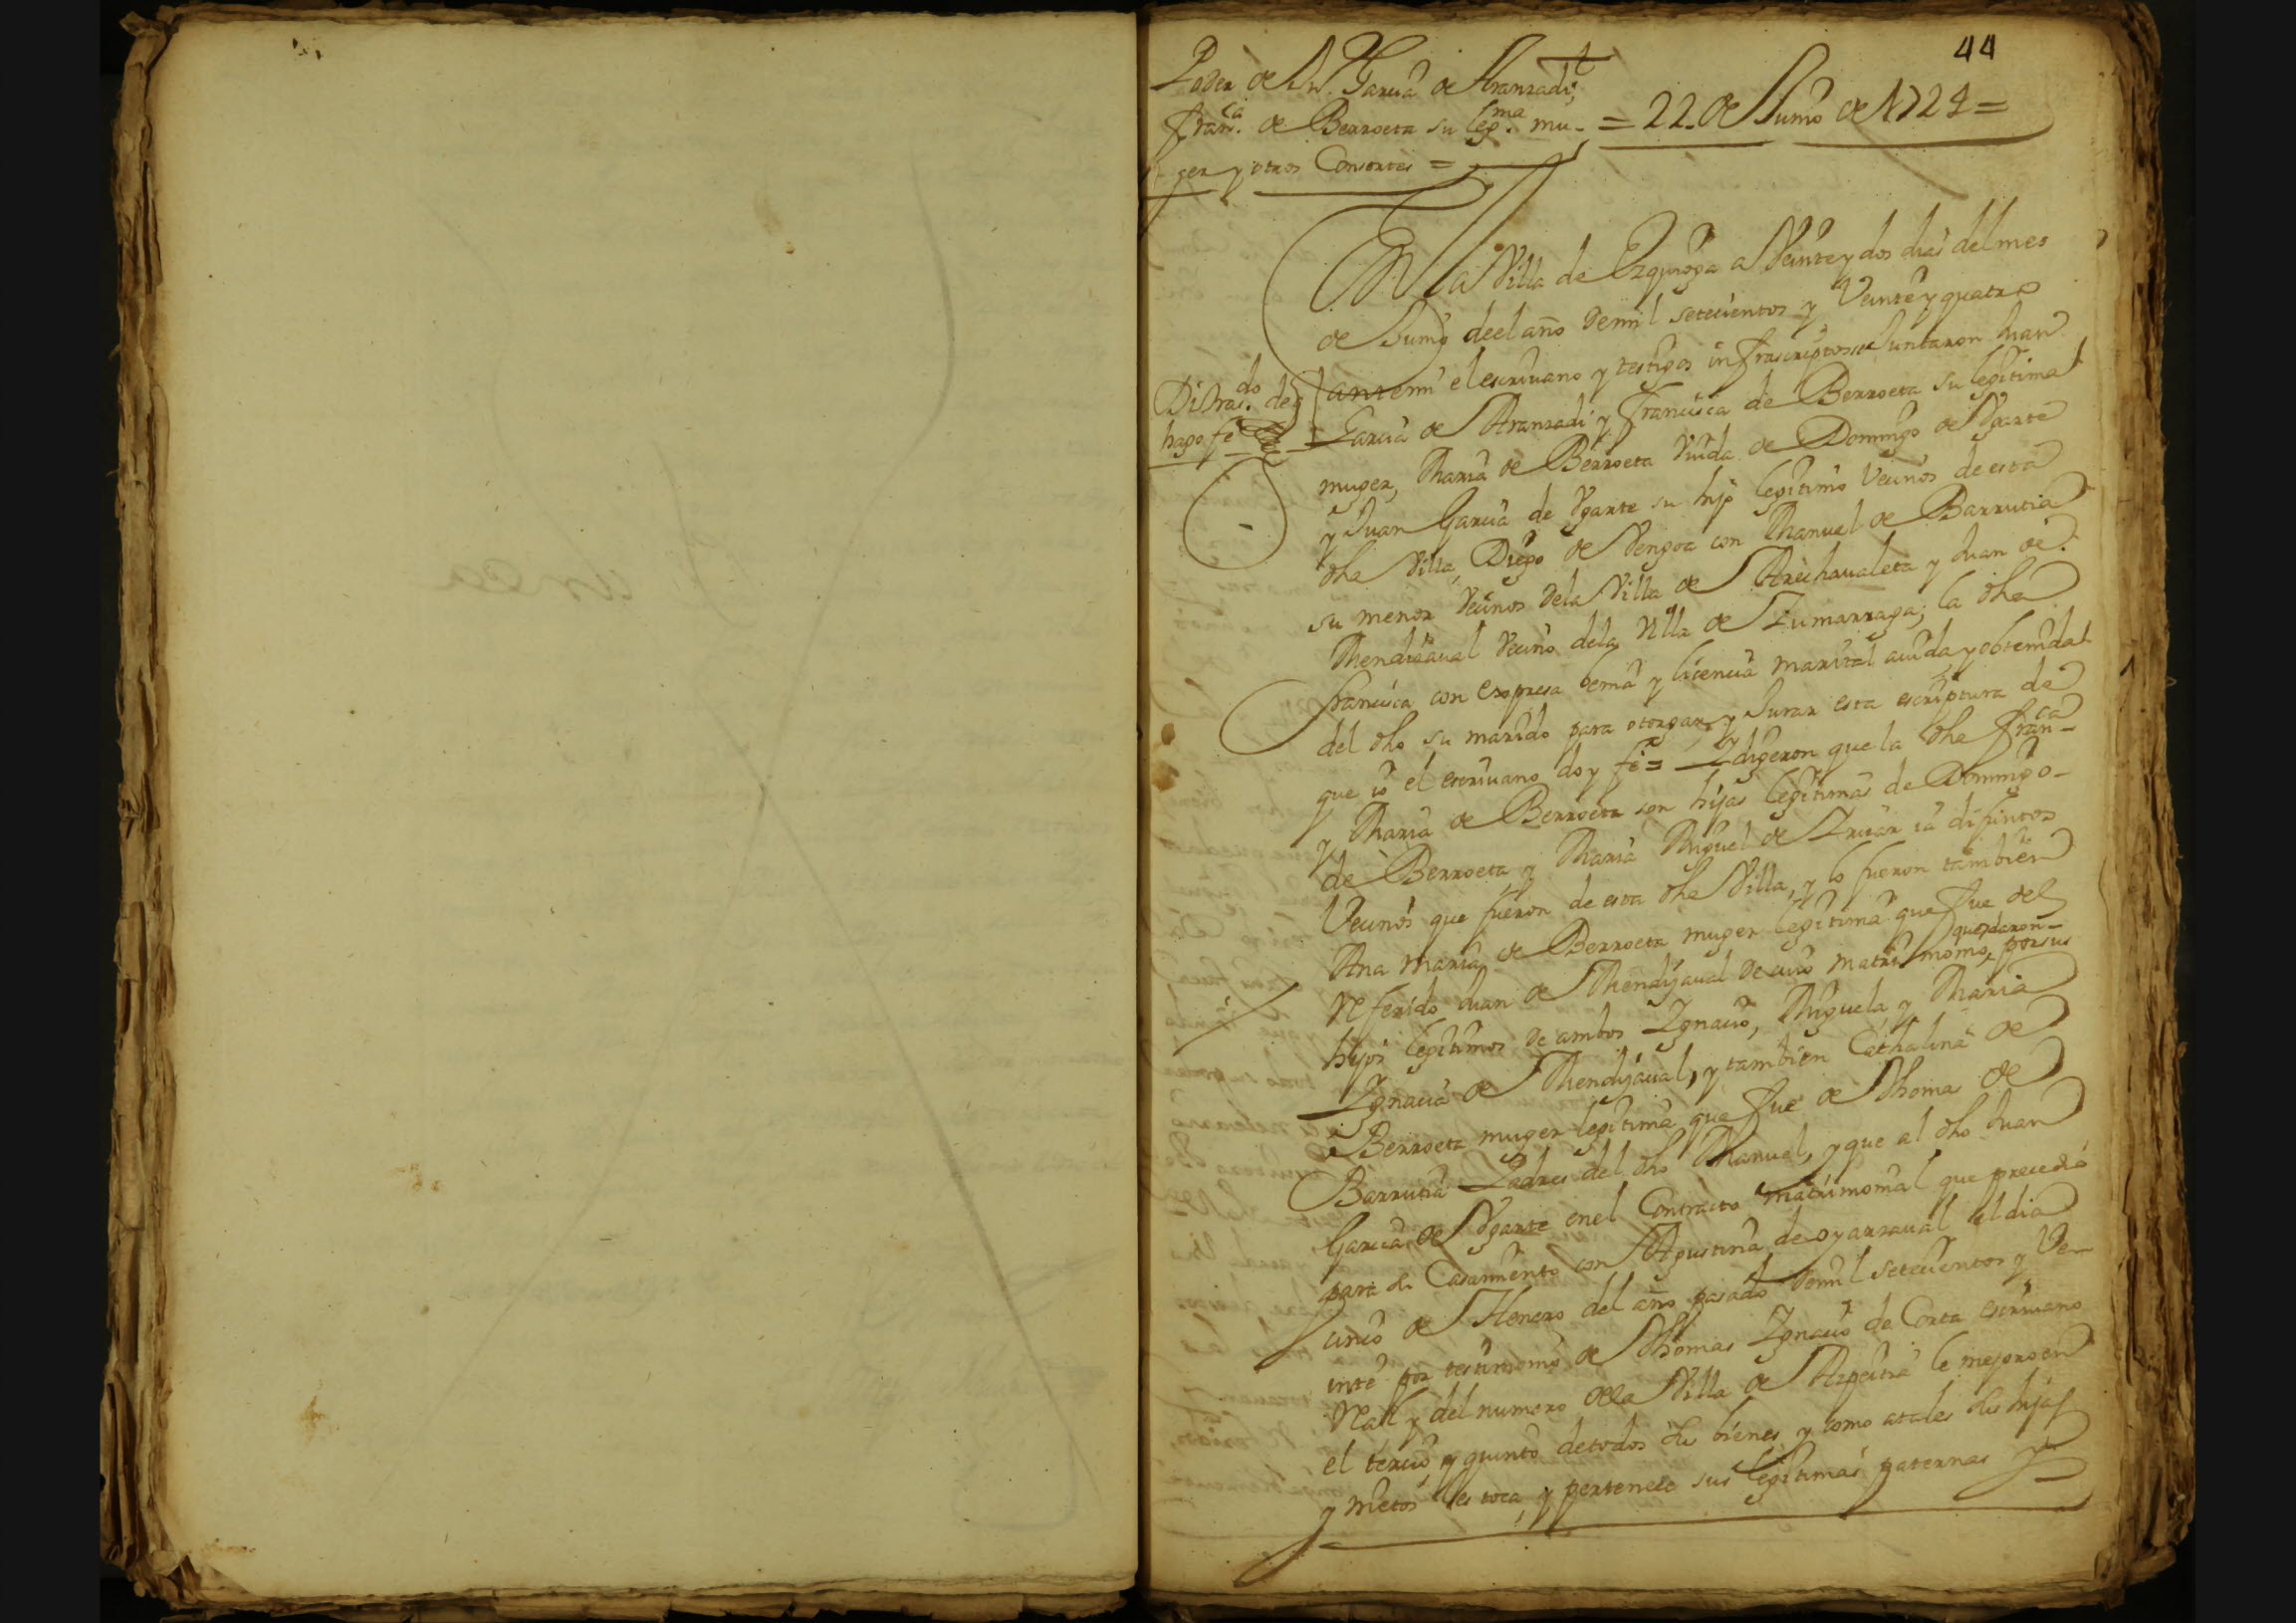 44
Poder de Jn. Garcia de Aranzadi,
Franca. de Berroeta su legma. mu-
ger y otros Consortes =
= 22. de Junio de 1724 =
En la Villa de Ezquioga a Veinte y dos dias del mes
de Junio de el año de mil setecientos y Veinte y quatro
ante mi el escrivano y testigos infrascriptos se Juntaron Juan
Garcia de Aranzadi y Francisca de Berroeta su legitima
muger, Maria de Berroeta Viuda de Domingo de Ugarte
y Juan Garcia de Ugarte su hijo legitimo Vecinos de esta
dha Villa, Diego de Vengoa con Manuel de Barrutia
su menor Vecinos de la Villa de Arechavaleta y Juan de
Mendizaval Vecino de la Villa de Zumarraga; la dha
Francisca con expresa venia y licencia marital avida y obtenida
del dho su marido para otorgar y Jurar esta escriptura de
que io el escrivano doy fe = digeron que la dha Franca
y Maria de Berroeta son hijas legitimas de Domingo
de Berroeta y Maria Miguel de Irizar ia difuntos
Vecinos que fueron de esta dha Villa, y lo fueron tambien
Ana maria de Berroeta muger legitima que fue del
Referido Juan de Mendizaval de cuio matrimonio, quedaron por sus
hijos legitimos de ambos Ignacio, Miguela, y Maria
Ignacia de Mendizaval, y tambien Cathalina de
Berroeta muger legitima que fue de Thomas de
Barrutia Padres del dho Manuel, y que al dho Juan
Garcia de Ugarte en el Contracto matrimonial que precedio
para su Casamiento con Agustina de oyarzaval el dia
cinco de Henero del año pasado de mil setecientos y Ve-
inte por testimonio de Thomas Ignacio de Corta escrivano
Real y del numero de la Villa de Azpeitia le mejoro en
el tercio y quinto de todos su bienes y como a tales sus hijas
y nietos les toca, y pertenece sus legitimas paternas y
Di tras.do de
hago fe